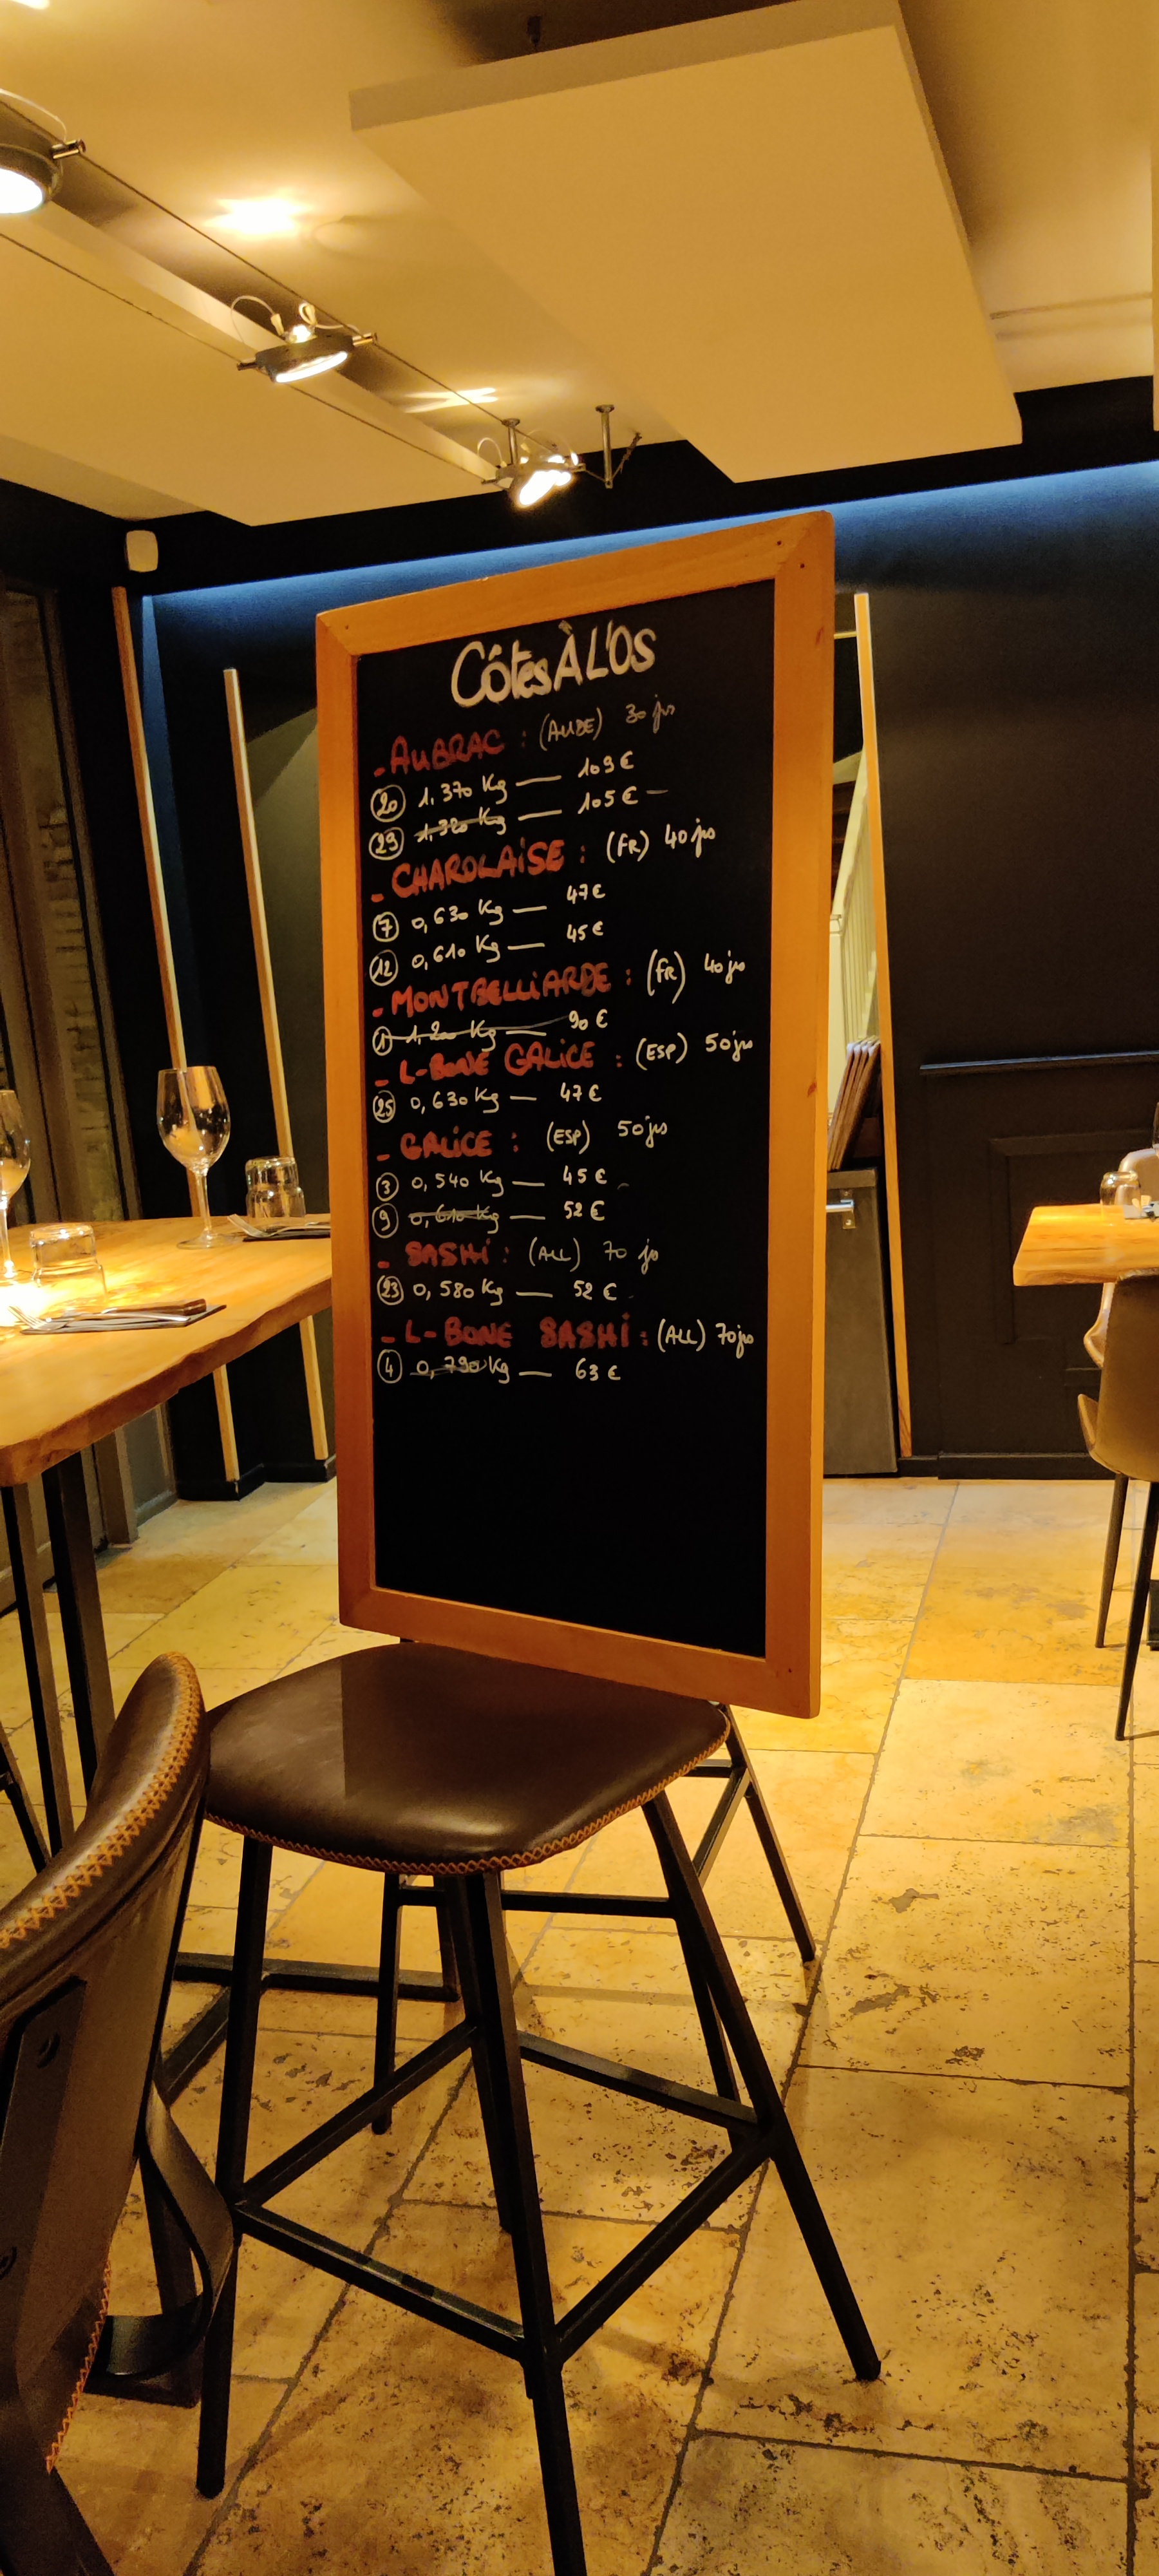 Côtes À L'OS
- AUBRAC : (AUDE) 30 jrs
20 1,370 Kg — 109 €
29 1,320 Kg — 105 € —
- CHAROLAISE : (FR) 40 jrs
7 0,630 Kg — 47 €
12 0,610 Kg — 45 €
- MONTBELLIARDE : (FR) 40 jrs
1 1,200 Kg — 90 €
- L-BONE GALICE : (ESP) 50 jrs
25 0,630 Kg — 47 €
- GALICE : (ESP) 50 jrs
3 0,540 Kg — 45 €
9 0,610 Kg — 52 €
- SASHI : (ALL) 70 js
23 0,580 Kg — 52 €
- L-BONE SASHI : (ALL) 70 jrs
4 0,790 Kg — 63 €